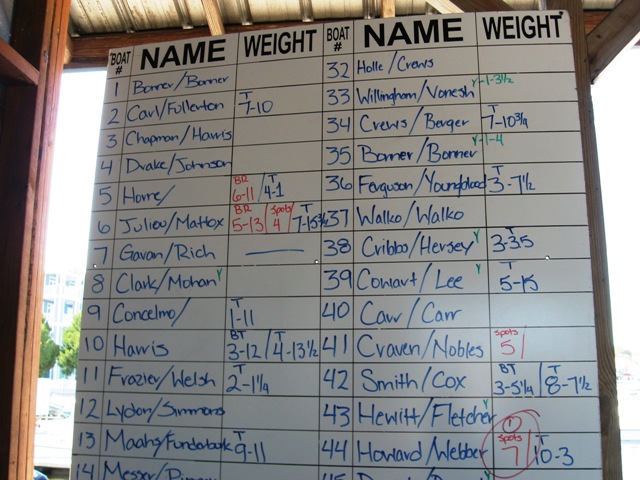 BOAT # NAME WEIGHT BOAT # NAME WEIGHT
1 Bonner/Bonner
2 Carl/Fullerton T 7-10
3 Chapman/Harris
4 Drake/Johnson
5 Horne/ BR 6-11/T 4-1
6 Julieu/Mattox BR 5-13/Spots 4/T 7-15¾
7 Gavan/Rich —
8 Clark/Mohan Y
9 Concelmo/ T 1-11
10 Harris BT 3-12/T 4-13½
11 Frazier/Welsh T 2-1¼
12 Lydon/Simmons
13 Maahs/Funderbunk T 9-11
14
32 Holle/Crews
33 Willingham/Vonesh Y-1-3½
34 Crews/Berger T 7-10¾
35 Bonner/Bonner Y-1-4
36 Ferguson/Youngblood T 3-7½
37 Walko/Walko
38 Cribbs/Hersey Y T 3-35
39 Cowart/Lee Y T 5-15
40 Carr/Carr
41 Craven/Nobles Spots 5/
42 Smith/Cox BT 3-5¼/T 8-7½
43 Hewitt/Fletcher Y
44 Howard/Webber 1 Spots 7/T 10-3